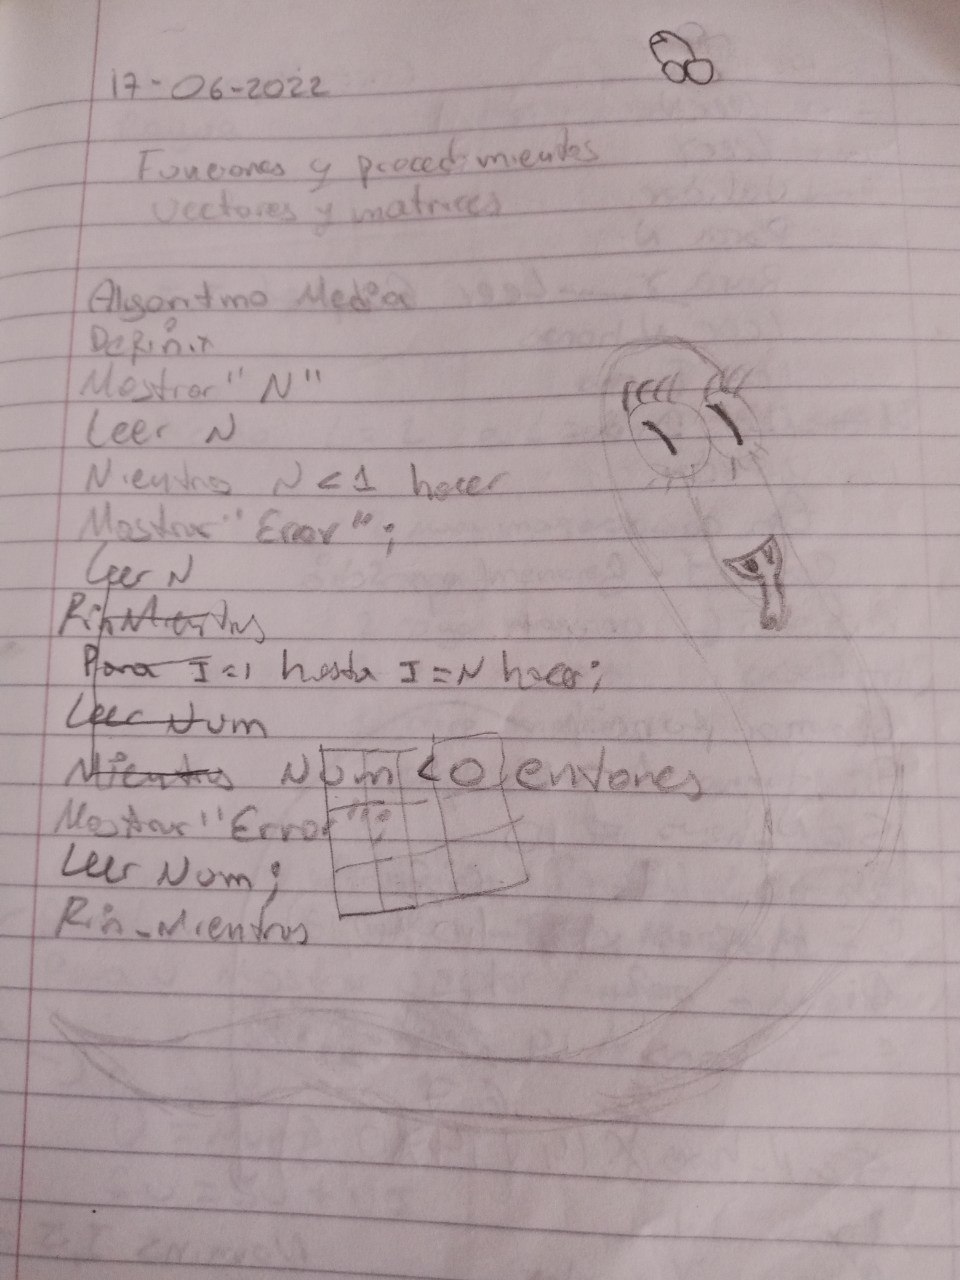 17-06-2022
Funciones y procedimientos
Vectores y matrices
Algoritmo Media
Definir
Mostrar "N"
Leer N
Mientras N < 1 hacer
Mostrar "Error";
Leer N
Fin Mientras
Para I=1 hasta I=N hacer;
Leer Num
Mientras Num < 0 entonces
Mostrar "Error";
Leer Num;
Fin-Mientras